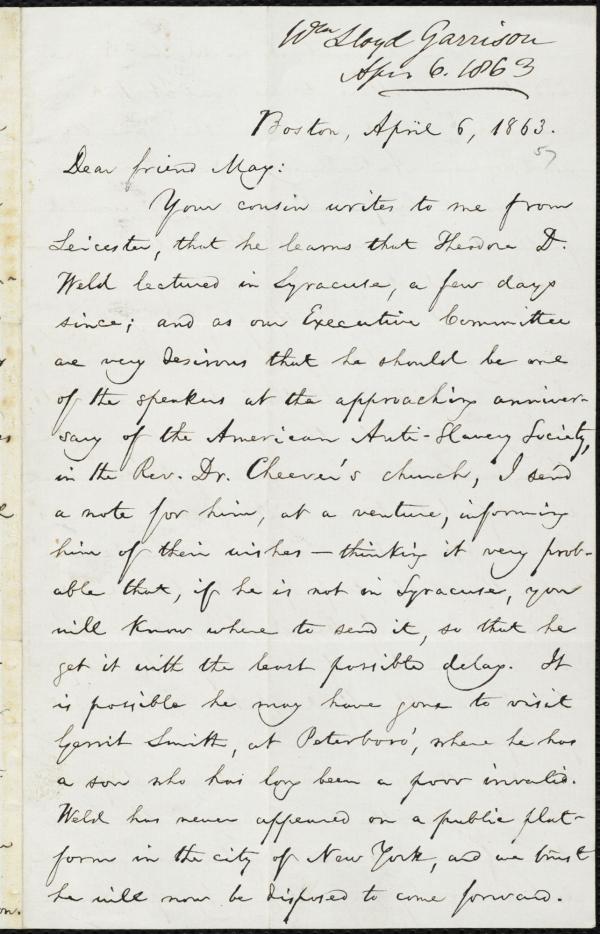 Wm Lloyd Garrison
Apr. 6. 1863
Boston, April 6, 1863.
57
Dear friend May:
Your cousin writes to me from
Leicester, that he learns that Theodore D.
Weld lectured in Syracuse, a few days
since; and as our Executive Committee
are very desirous that he should be one
of the speakers at the approaching anniver-
sary of the American Anti-Slavery Society,
in the Rev. Dr. Cheever's church, I send
a note for him, at a venture, informing
him of their wishes — thinking it very prob-
able that, if he is not in Syracuse, you
will know where to send it, so that he
get it with the least possible delay. It
is possible he may have gone to visit
Gerrit Smith, at Peterboro', where he has
a son who has long been a poor invalid.
Weld has never appeared on a public plat-
form in the city of New York, and we trust
he will now be disposed to come forward.
on.